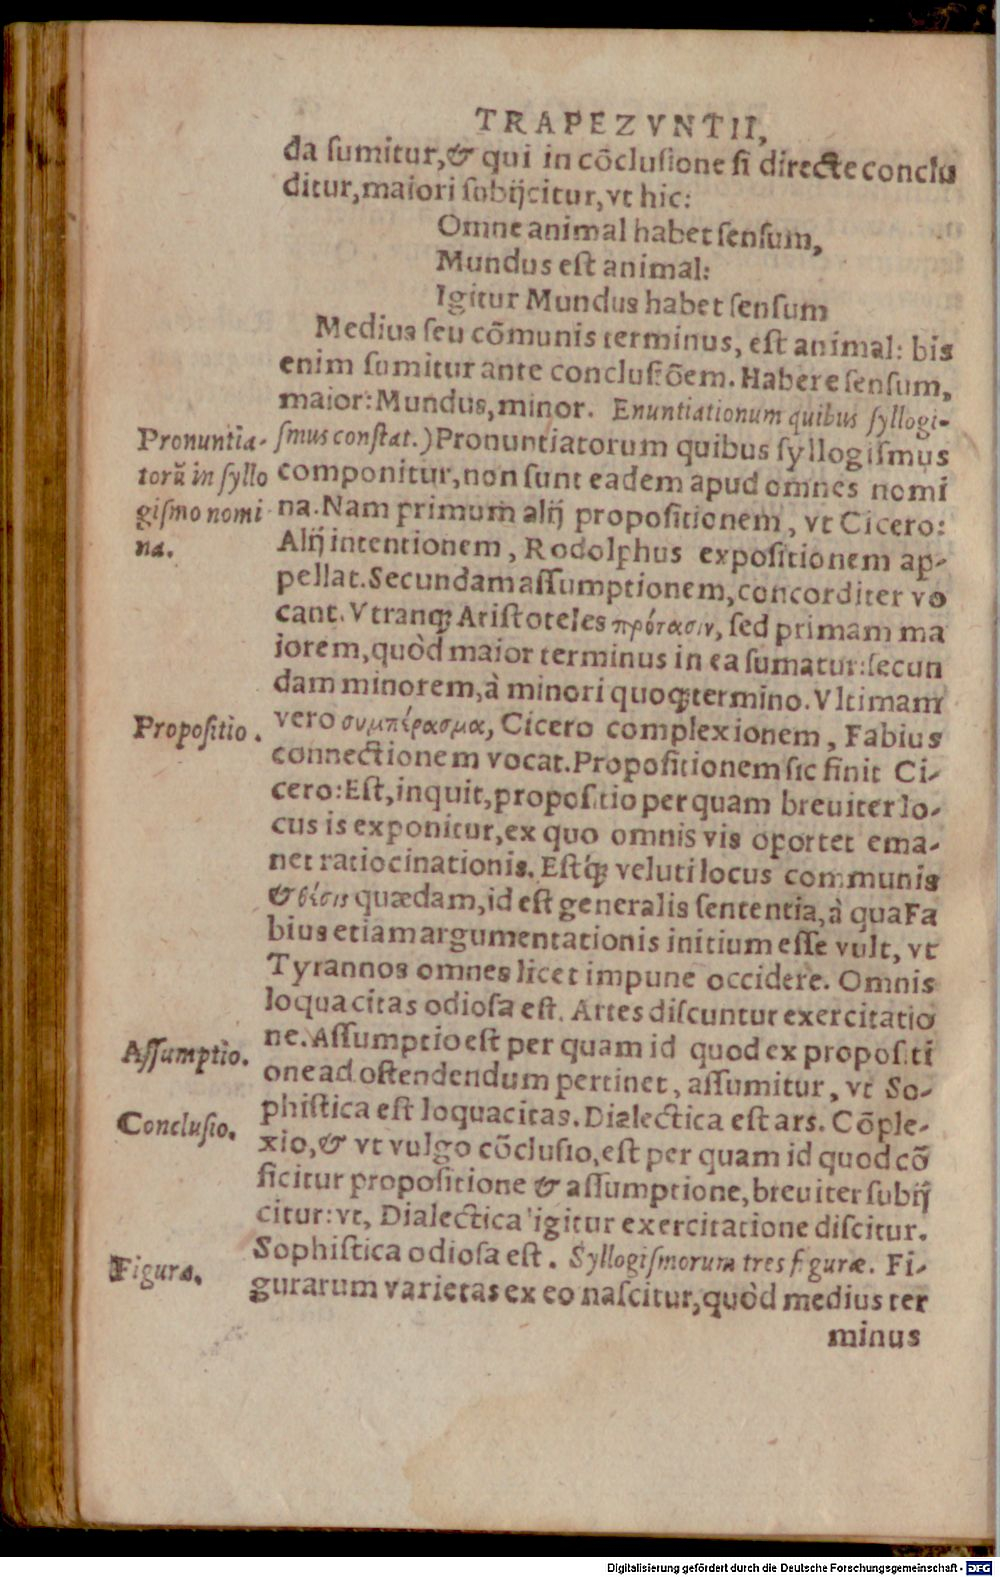 TRAPEZVNTII,
da ſumitur,& qui in cõcluſione ſi directe conclu
ditur,maiori ſubijcitur,vt hic:
Omne animal habet ſenſum,
Mundus eſt animal:
Igitur Mundus habet ſenſum
Medius ſeu cõmunis terminus, eſt animal: bis
enim ſumitur ante concluſiõem. Habere ſenſum,
maior: Mundus, minor. Enuntiationum quibus ſyllogi-
ſmus conſtat.) Pronuntiatorum quibus ſyllogiſmus
componitur, non ſunt eadem apud omnes nomi
na. Nam primum alij propoſitionem, vt Cicero:
Alij intentionem, Rodolphus expoſitionem ap-
pellat. Secundam aſſumptionem, concorditer vo
cant. Vtranq; Ariſtoteles πρότασιν, ſed primam ma
iorem, quòd maior terminus in ea ſumatur: ſecun
dam minorem, à minori quoq; termino. Vltimam
vero συμπέρασμα, Cicero complexionem, Fabius
connectionem vocat. Propoſitionem ſic finit Ci-
cero: Eſt, inquit, propoſitio per quam breuiter lo-
cus is exponitur, ex quo omnis vis oportet ema-
net ratiocinationis. Eſtq́; veluti locus communis
& θέσις quædam, id eſt generalis ſententia, à qua Fa
bius etiam argumentationis initium eſſe vult, vt
Tyrannos omnes licet impune occidere. Omnis
loquacitas odioſa eſt. Artes diſcuntur exercitatio
ne. Aſſumptio eſt per quam id quod ex propoſiti
one ad oſtendendum pertinet, aſſumitur, vt So-
phiſtica eſt loquacitas. Dialectica eſt ars. Cõple-
xio, & vt vulgo cõcluſio, eſt per quam id quod cõ
ficitur propoſitione & aſſumptione, breuiter ſubij
citur: vt, Dialectica igitur exercitatione diſcitur.
Sophiſtica odioſa eſt. Syllogiſmorum tres figuræ. Fi-
gurarum varietas ex eo naſcitur, quòd medius ter
minus
Pronuntia-
torũ in ſyllo
giſmo nomi
na.
Propoſitio.
Aſſumptio.
Concluſio.
Figura.
Digitalisierung gefördert durch die Deutsche Forschungsgemeinschaft - DFG